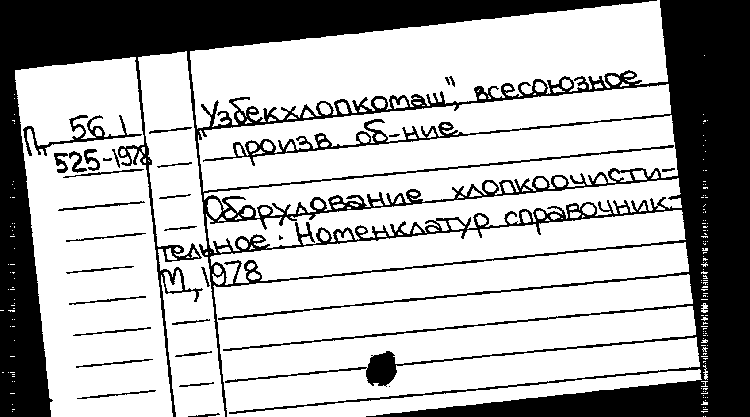 П, 56.1
525-1978
„Узбекхлопкомаш", всесоюзное
произв. об-ние.
Оборудование хлопкоочисти-
тельное: Номенклатур справочник.-
М., 1978